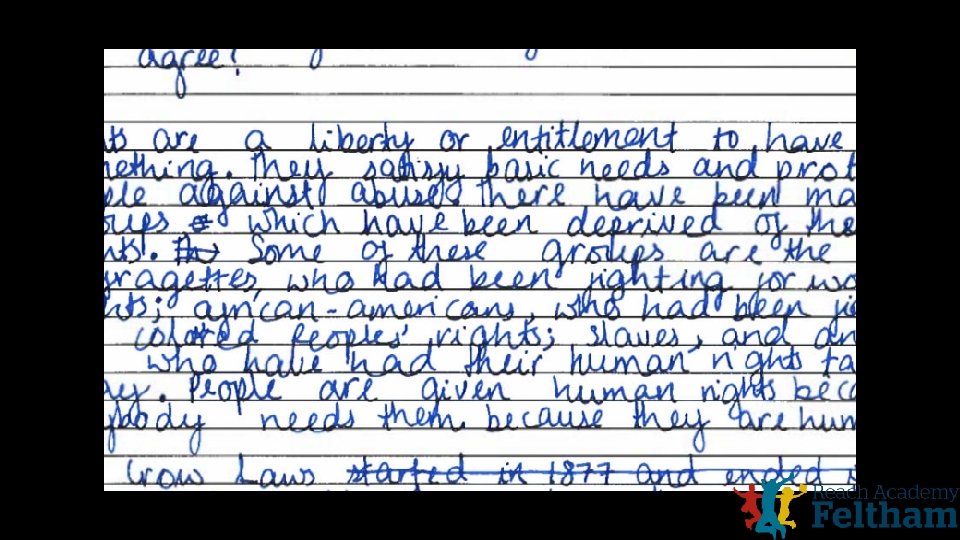 agree?
ts are a liberty or entitlement to have
nething. They satisfy basic needs and prot
ple against abuse. There have been ma
oups which have been deprived of the
hts. Some of these groups are the
fragettes, who had been fighting for wo
hts; african-americans, who had been fi
colored peoples' rights; slaves, and an
who have had their human rights ta
ay. People are given human rights beca
ybody needs them, because they are hum
Crow Laws started in 1877 and ended
Reach Academy
Feltham